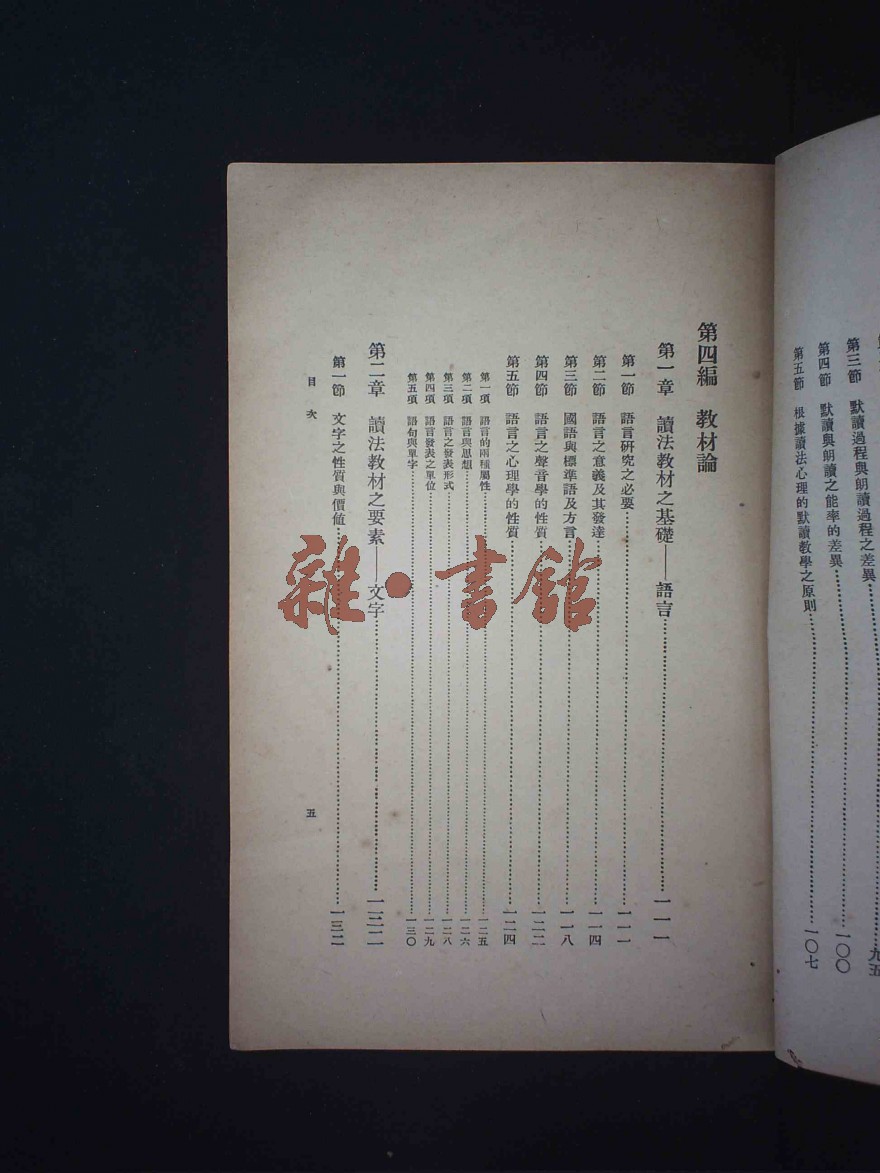 第三節 默讀過程與朗讀過程之差異……九五
第四節 默讀與朗讀之能率的差異……一〇〇
第五節 根據讀法心理的默讀教學之原則……一〇七
第四編 教材論
第一章 讀法教材之基礎——語言……一一一
第一節 語言研究之必要……一一一
第二節 語言之意義及其發達……一一四
第三節 國語與標準語及方言……一一八
第四節 語言之聲音學的性質……一二二
第五節 語言之心理學的性質……一二四
第一項 語言的兩種屬性……一二五
第二項 語言與思想……一二六
第三項 語言之發表形式……一二八
第四項 語言發表之單位……一二九
第五項 語句與單字……一三〇
第二章 讀法教材之要素——文字……一三二
第一節 文字之性質與價値……一三二
目次
五
雜·書館